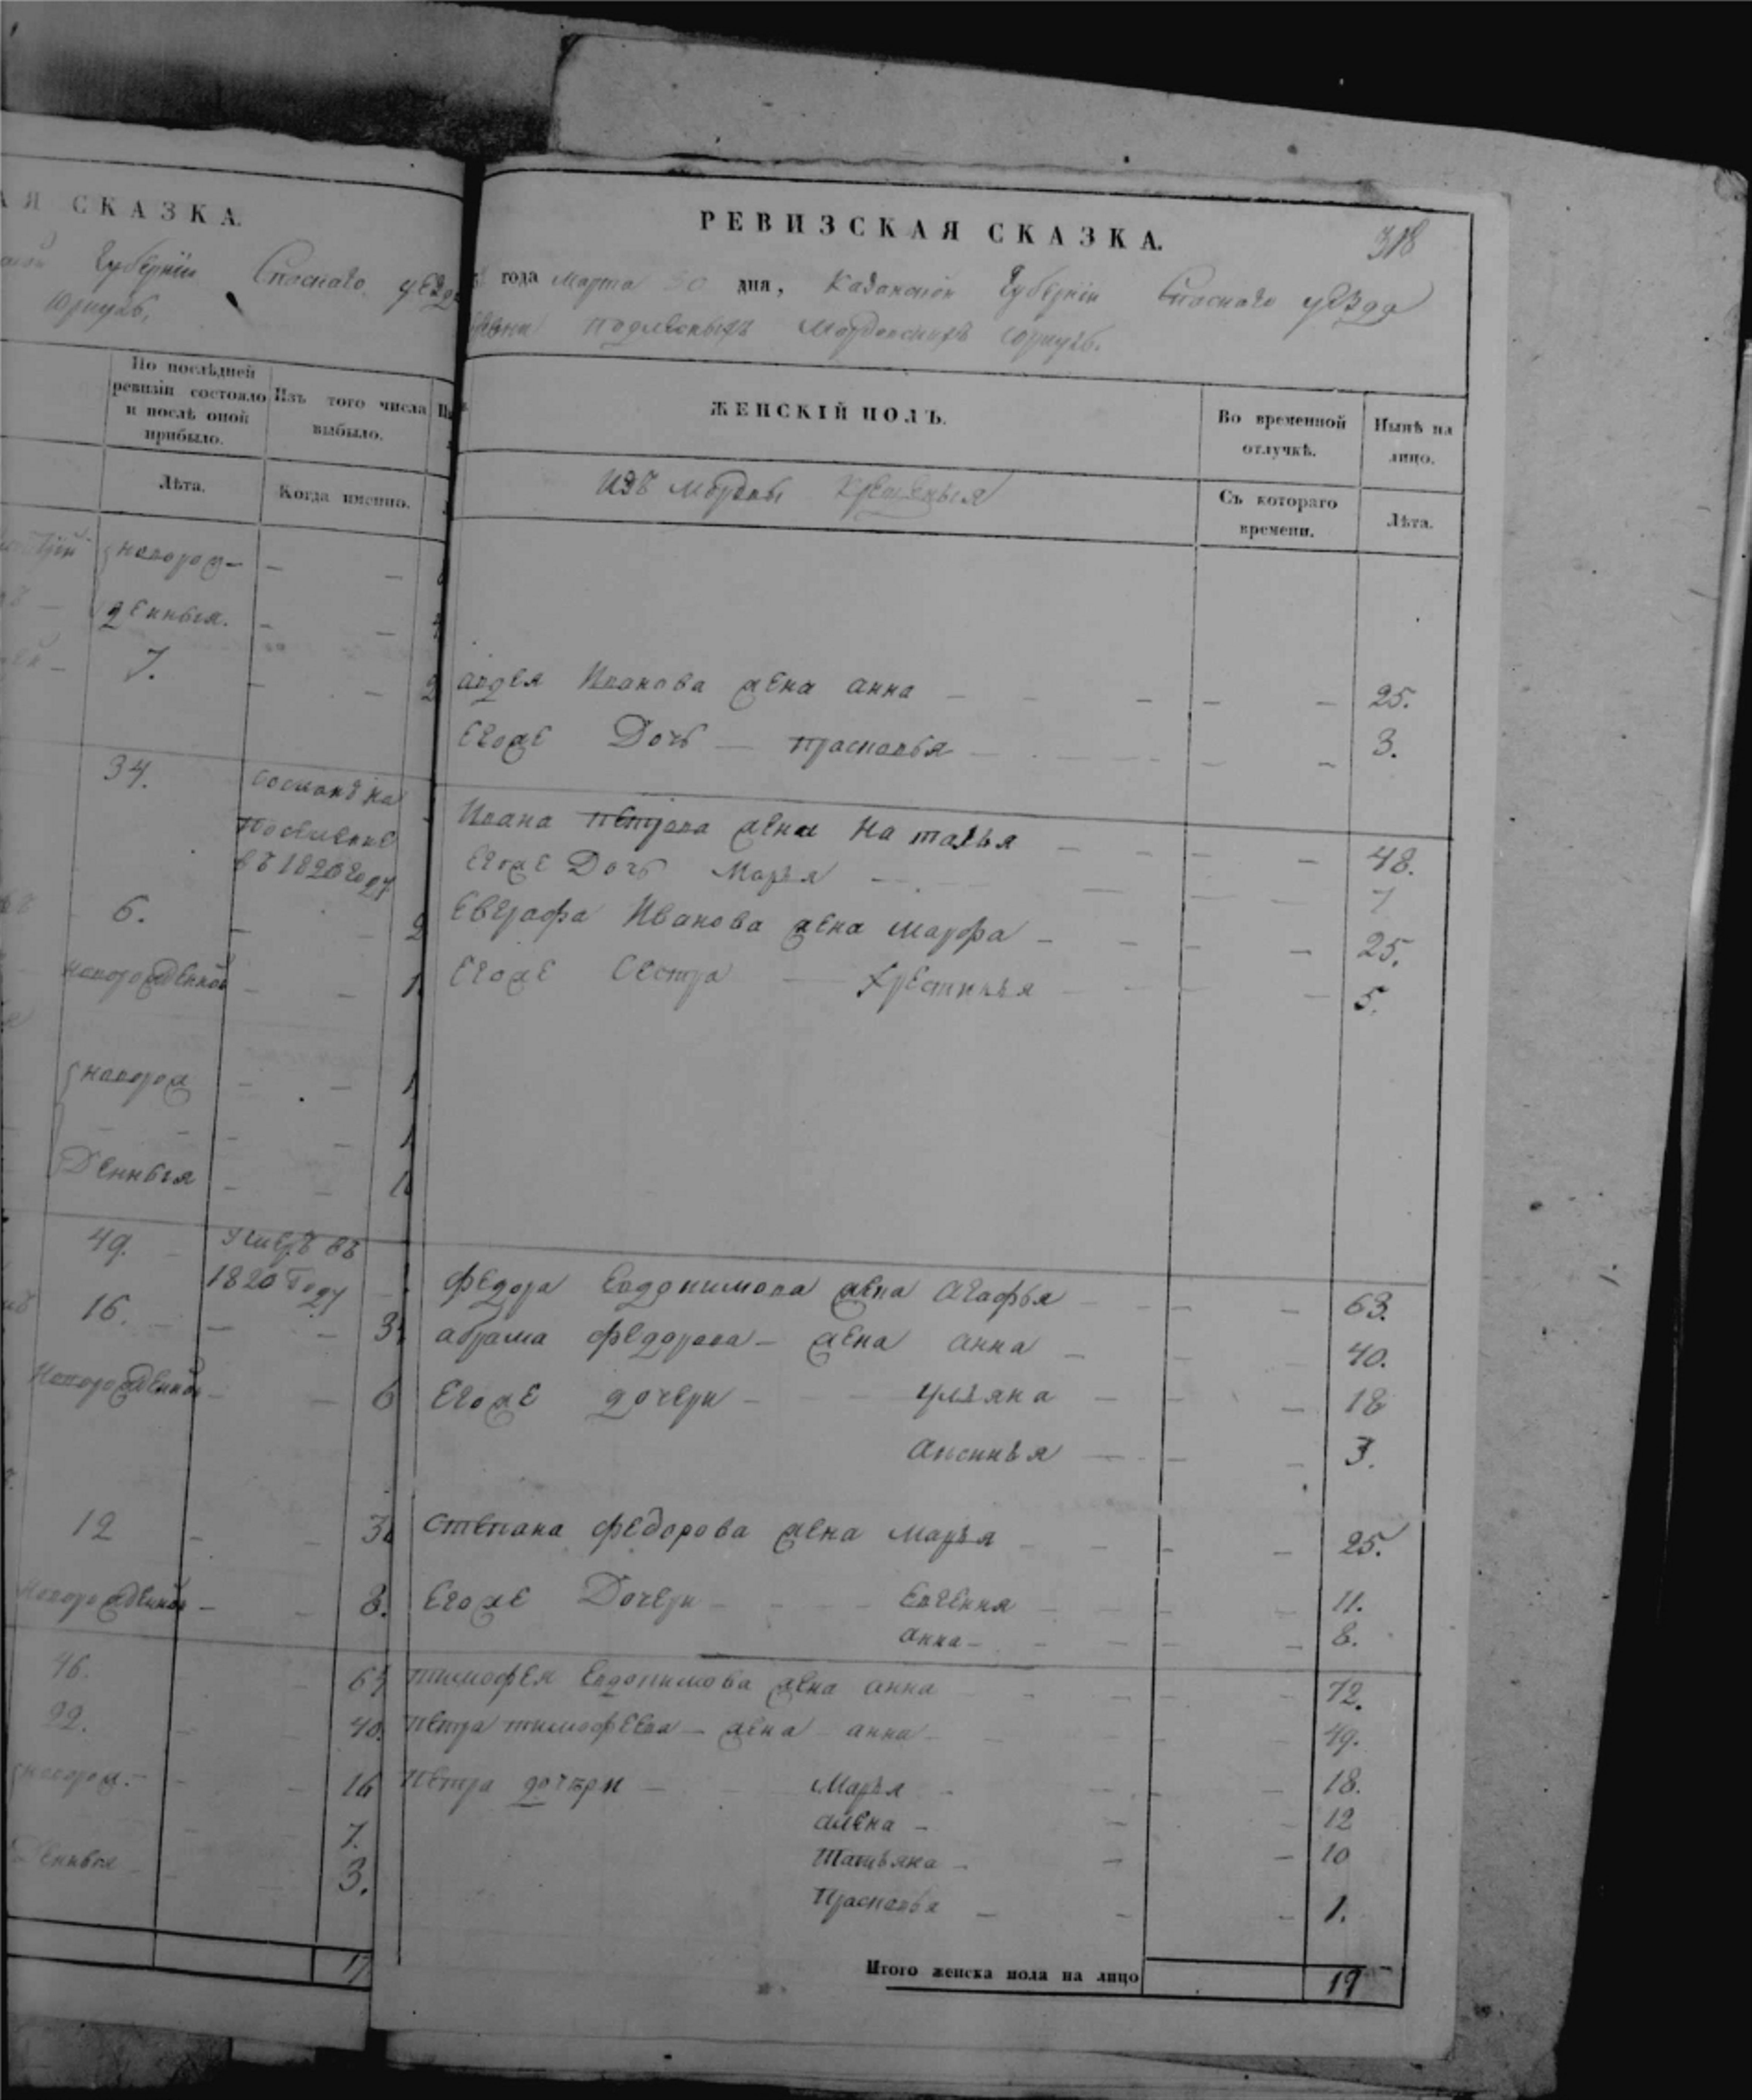 АЯ СКАЗКА.
Губернiи Спаскаго уезда
Юрткуль,
По послѣдней ревизiи состояло и послѣ оной прибыло.
Изъ того числа выбыло.
Лѣта.
Когда именно.
новорож-
денныя.
7.
34.
сосланъ на
поселение
въ 1820 году
6. 2
новорожденной 1
новорож 1
1
денныя 1
49. умеръ въ
1820 Году
16. 3
Новорожденной 6
12 3
Новорожденной 8.
46.
22. 40.
новорож. 16
7.
денныя 3.
17
РЕВИЗСКАЯ СКАЗКА.
318
года марта 30 дня, Казанской Губернiи Спаскаго уезда
подлесныхъ Мордовскихъ
ЖЕНСКIЙ ПОЛЪ.
Во временной отлучкѣ.
Нынѣ на лицо.
изъ мордвы крещеныя
Съ котораго времени.
Лѣта.
авдея Иванова жена анна 25.
Егоже Дочь прасковья 3.
Ивана петрова жена Наталья 48.
Егоже Дочь Марья 7
Евграфа Иванова жена марфа 25.
Егоже Сестра Хрестинья 5.
федора Евдокимова жена агафья 63.
абрама федорова жена анна 40.
Егоже дочери ульяна 18
аксинья 3.
степана федорова жена марья 25.
Егоже Дочери Евгения 11.
анна 8.
тимофея Евдокимова жена анна 72.
петра тимофеева жена анна 49.
Петра дочери Марья 18.
алена 12
Татьяна 10
Прасковья 1.
Итого женска пола на лицо 19